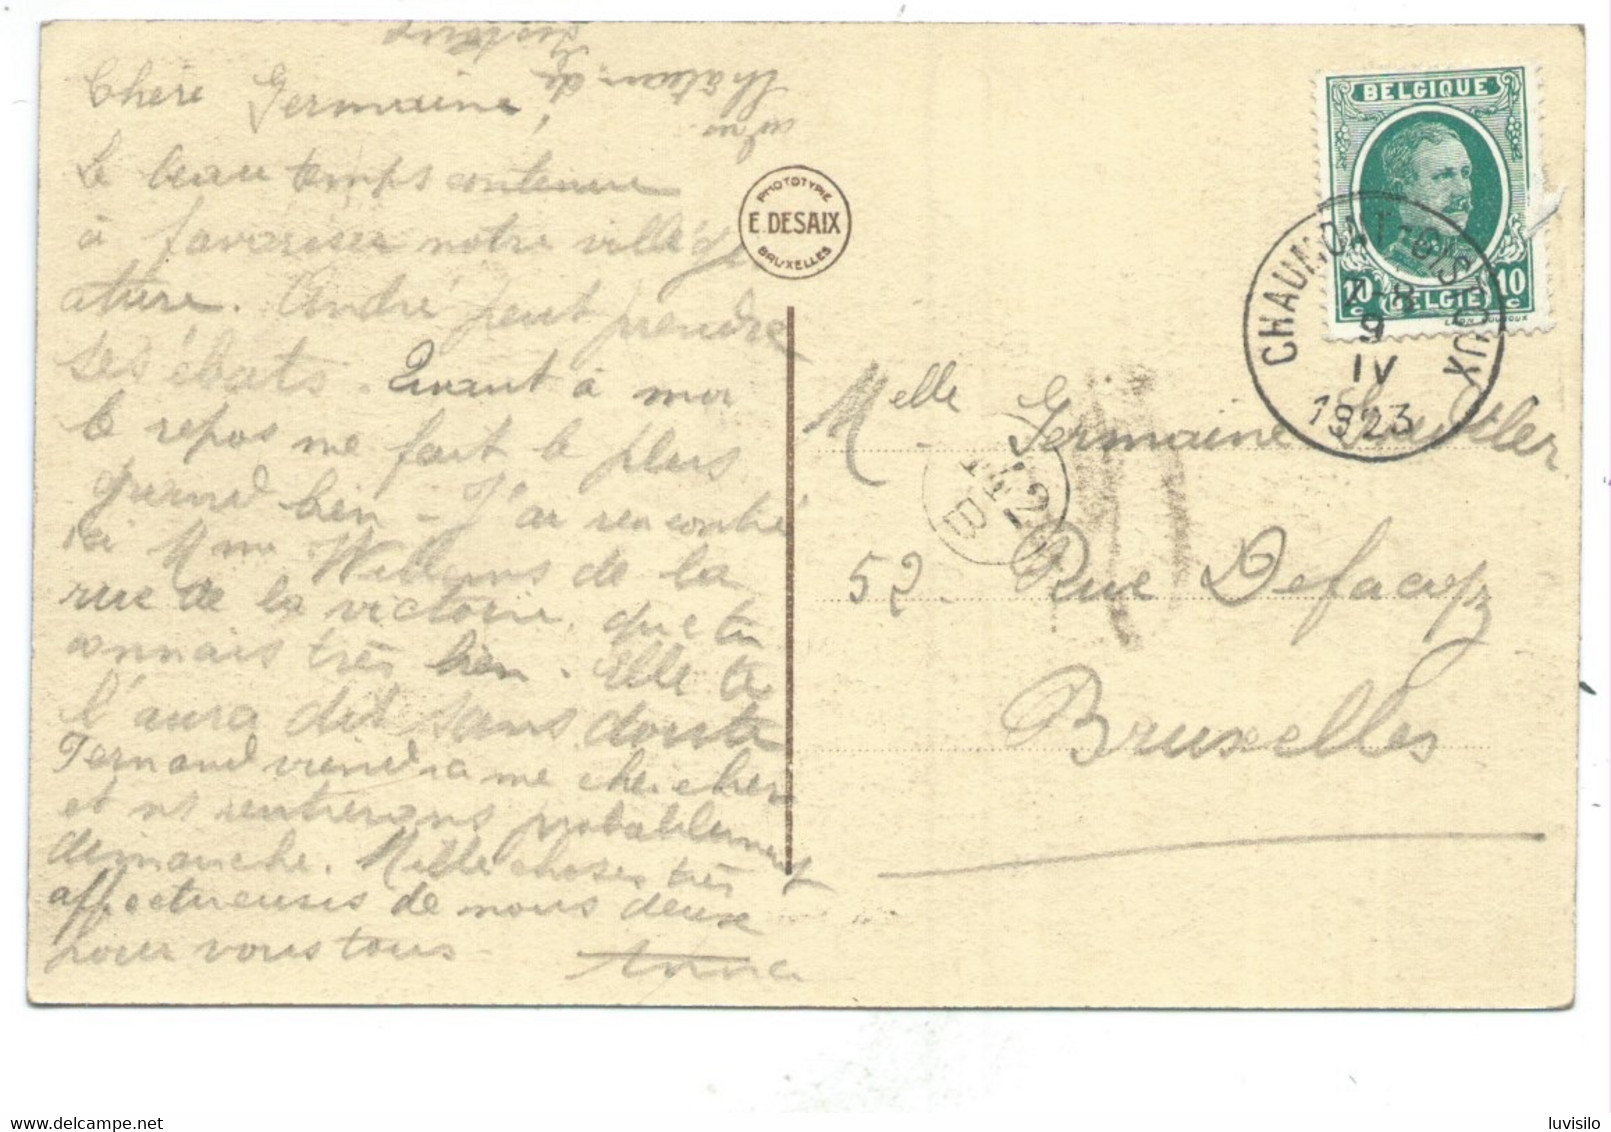 Chère Germaine,
Le beau temps continue
à favoriser notre villég
iature. André peut prendre
ses ébats. Quant à moi
le repos me fait le plus
grand bien - J'ai rencontré
ici Mme Willems de la
rue de la victoire que tu
connais très bien. Elle te
l'aura dit sans doute
Fernand viendra me chercher
et ns rentrerons probablement
dimanche. Mille choses très
affectueuses de nous deux
pour vous tous -
Anna
château de
PHOTOTYPIE
E. DESAIX
BRUXELLES
BELGIQUE
10 c
10 c
BELGIE
CHAUMONT-GISTOUX
7-8
9
IV
1923
Melle Germaine
52. Rue Defacqz
Bruxelles
luvisilo